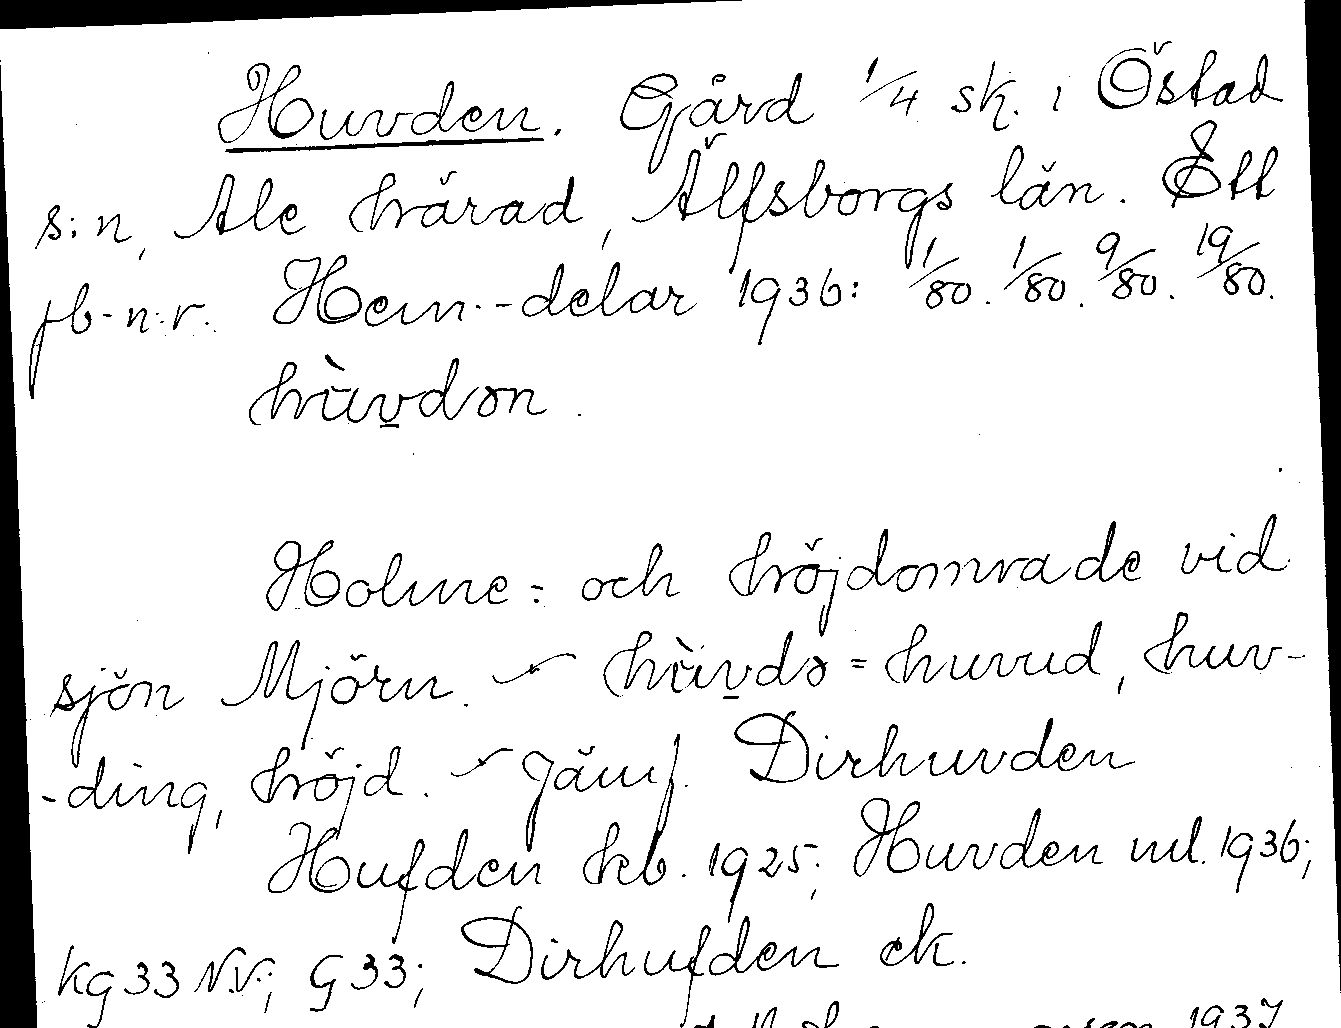 Huvden. Gård 1/4 sk. i Östad
s:n, Ale härad, Älfsborgs län. Ett
jb-n:r. Hem.-delar 1936: 1/80. 1/80. 9/80. 19/80.
hùv̠dən.
Holme- och höjdområde vid
sjön Mjörn. – hùv̠də = huvud, huv-
-ding, höjd. – Jämf. Dirhuvden
Hufden hcb. 1925; Huvden ml. 1936;
Kg 33 N.V.; G 33; Dirhufden ek.
1937